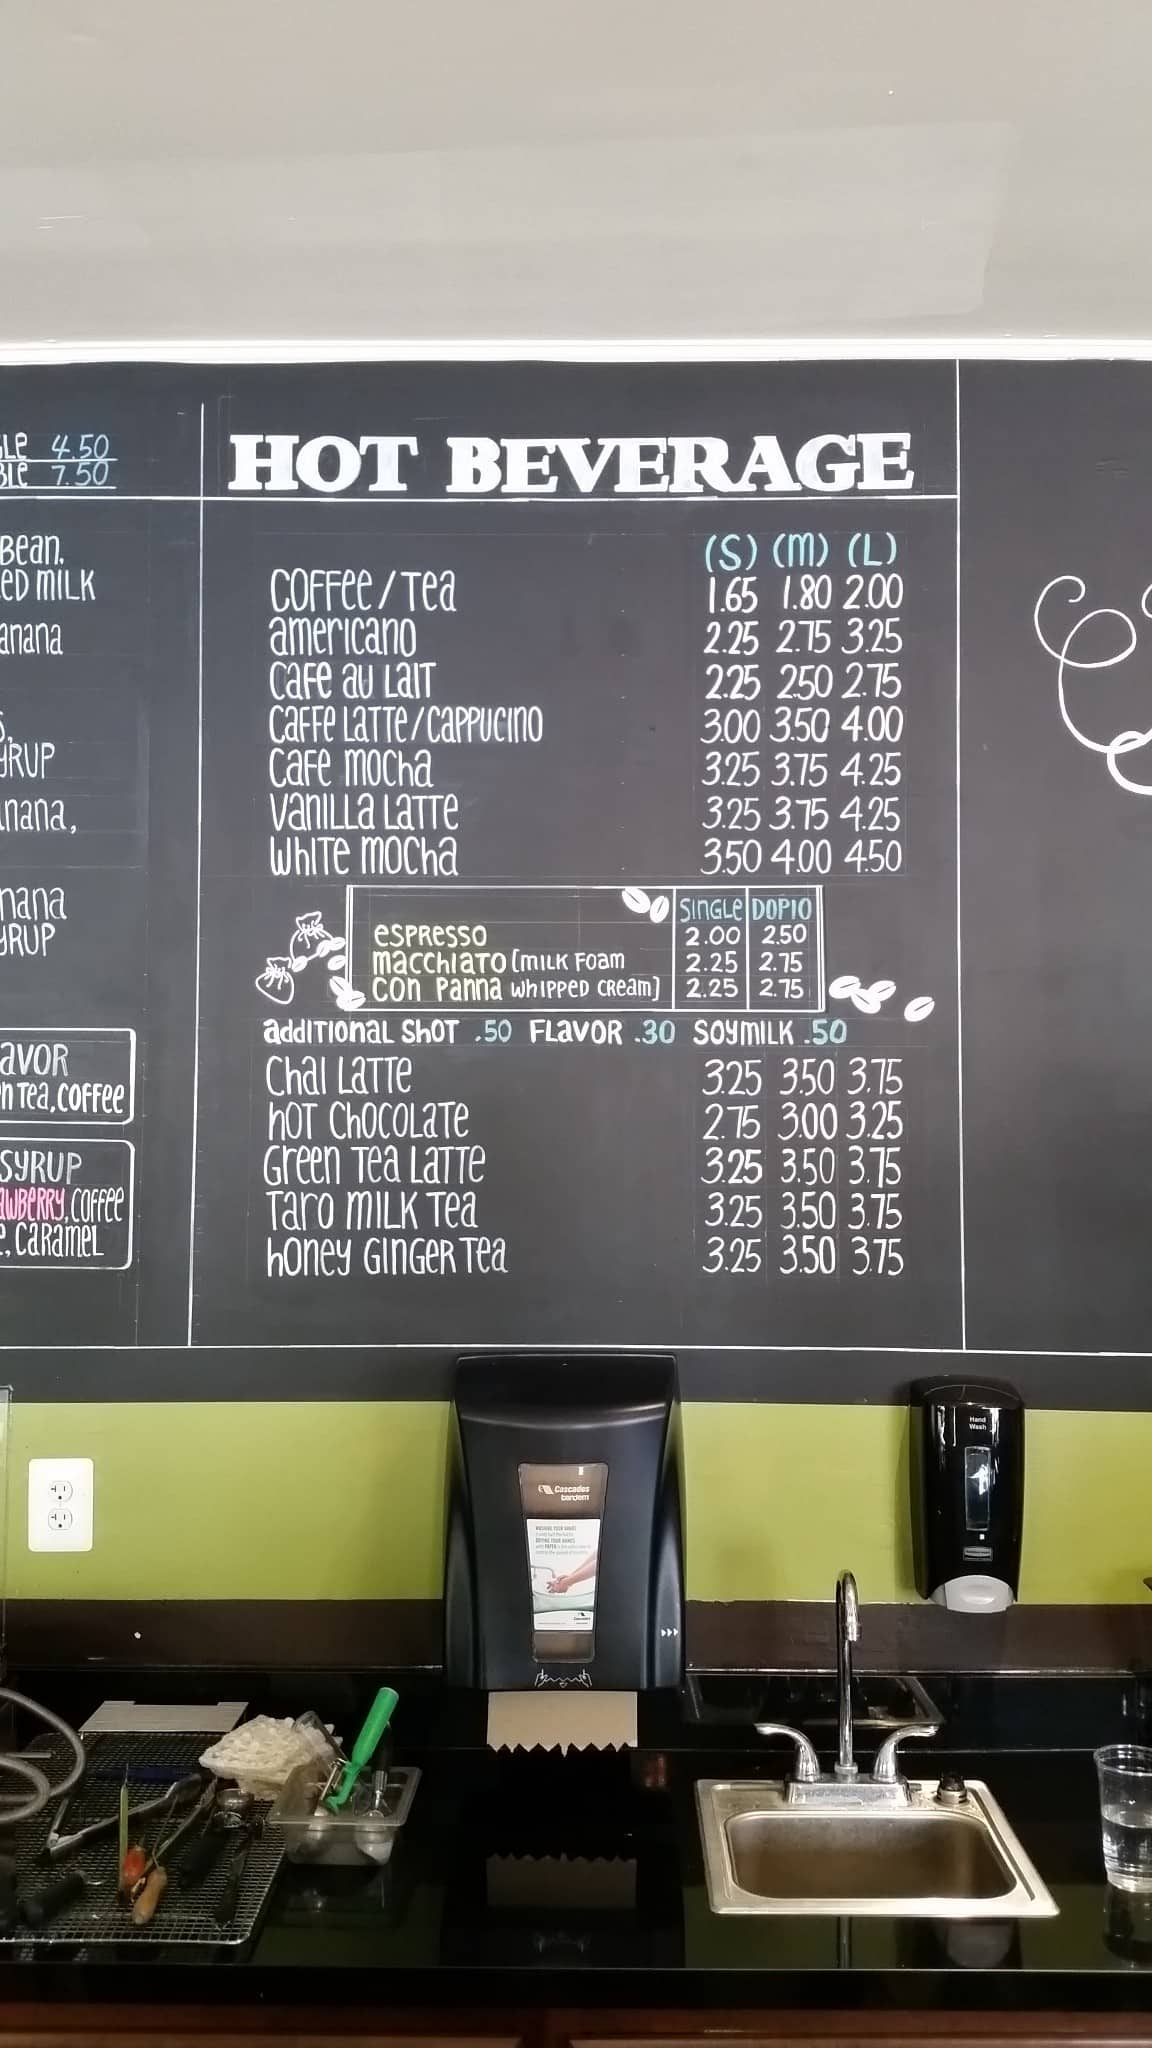 4.50
7.50
Bean,
MILK
SYRUP
COFFEE
CARAMEL
HOT BEVERAGE
(S) (M) (L)
COFFEE/TEA 1.65 1.80 2.00
americano 2.25 2.75 3.25
CAFE AU LAIT 2.25 2.50 2.75
CAFFE LATTE/CAPPUCINO 3.00 3.50 4.00
CAFE MOCHA 3.25 3.75 4.25
VANILLA LATTE 3.25 3.75 4.25
WHITE MOCHA 3.50 4.00 4.50
SINGLE DOPIO
ESPRESSO 2.00 2.50
MACCHIATO [MILK FOAM 2.25 2.75
CON PANNA WHIPPED CREAM] 2.25 2.75
additional SHOT .50 FLAVOR .30 SOYMILK .50
CHAI LATTE 3.25 3.50 3.75
HOT CHOCOLATE 2.75 3.00 3.25
GREEN TEA LATTE 3.25 3.50 3.75
TARO MILK TEA 3.25 3.50 3.75
HONEY GINGER TEA 3.25 3.50 3.75
Hand
Wash
Cascades
tandem
WASHING YOUR HANDS
DRYING YOUR HANDS
Cascades